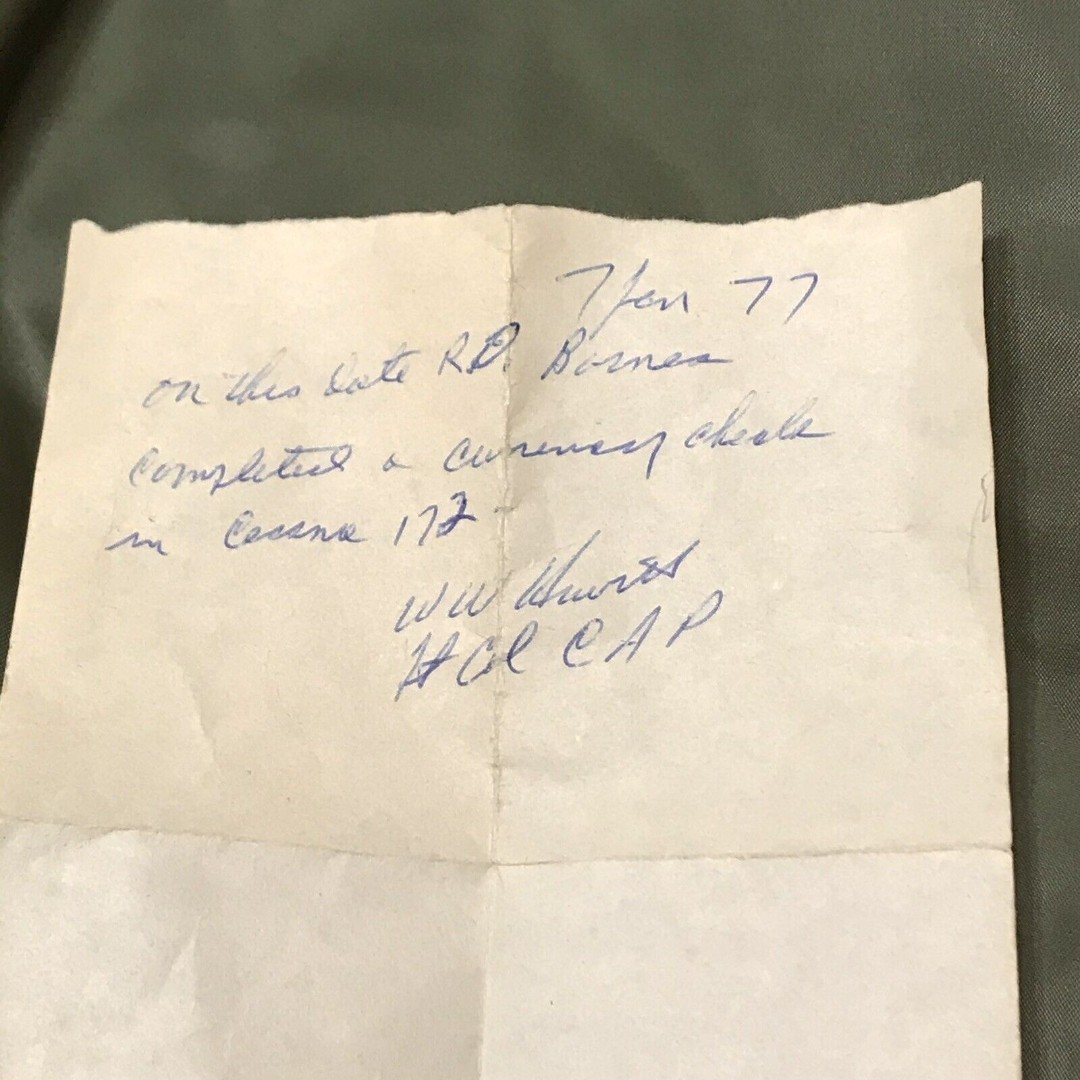 7 Jan 77
on this date R.D. Barnes
Completed a currency check
in Cessna 172
W W
Lt Col C A P